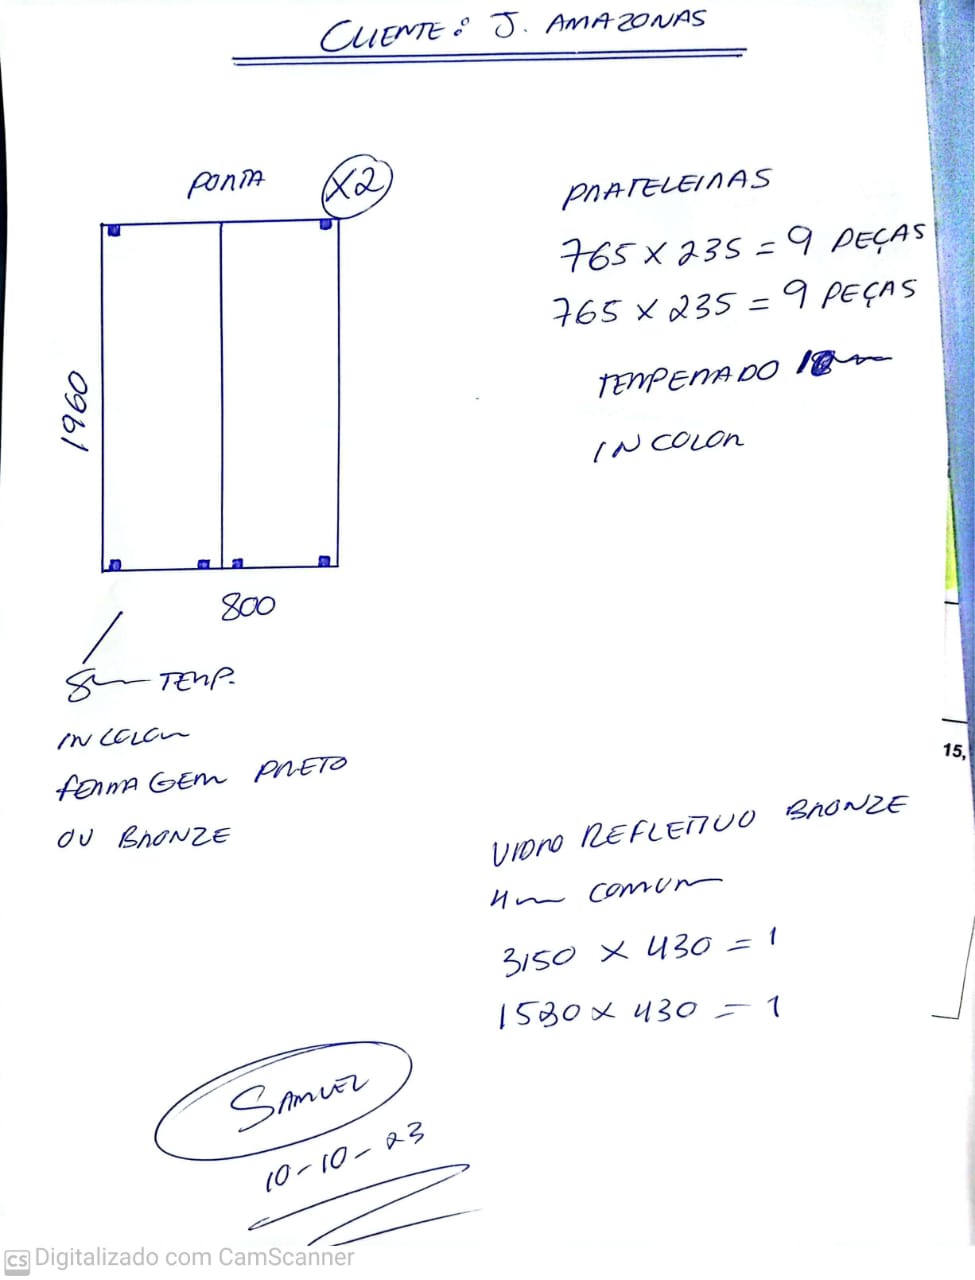 CLIENTE: J. AMAZONAS
PORTA X2
1960
800
8mm TEMP.
INCOLOR
FERRAGEM PRETO
OU BRONZE
PRATELEIRAS
765 X 235 = 9 PEÇAS
765 X 235 = 9 PEÇAS
TEMPERADO
INCOLOR
VIDRO REFLETIVO BRONZE
4mm COMUM
3150 X 430 = 1
430 = 1
SAMUEL
10-10-23
15,
CS Digitalizado com CamScanner